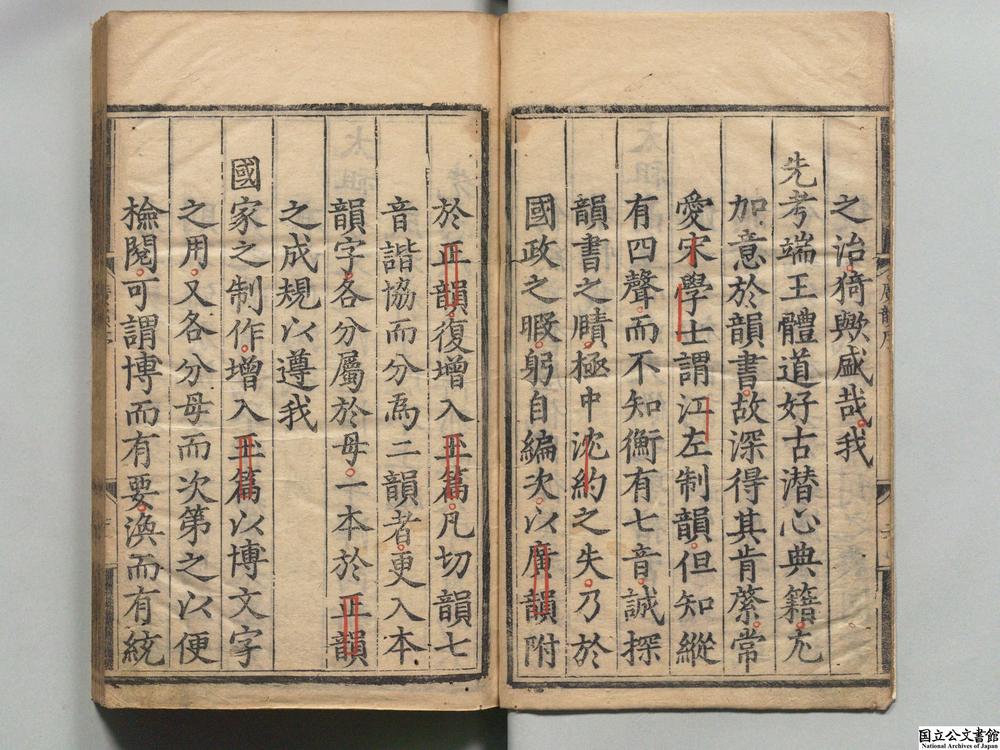 之治猗歟盛哉我
先考端王體道好古潛心典籍尤
加意於韻書故深得其肯綮常
愛宋學士謂江左制韻但知縱
有四聲而不知衡有七音誠探
韻書之賾極中沈約之失乃於
國政之暇躬自編次以廣韻附
於正韻復增入玉篇凡切韻七
音諧協而分爲二韻者更入本
韻字各分屬於母一本於正韻
之成規以遵我
國家之制作增入玉篇以博文字
之用又各分母而次第之以便
檢閱可謂博而有要渙而有統
国立公文書館
National Archives of Japan